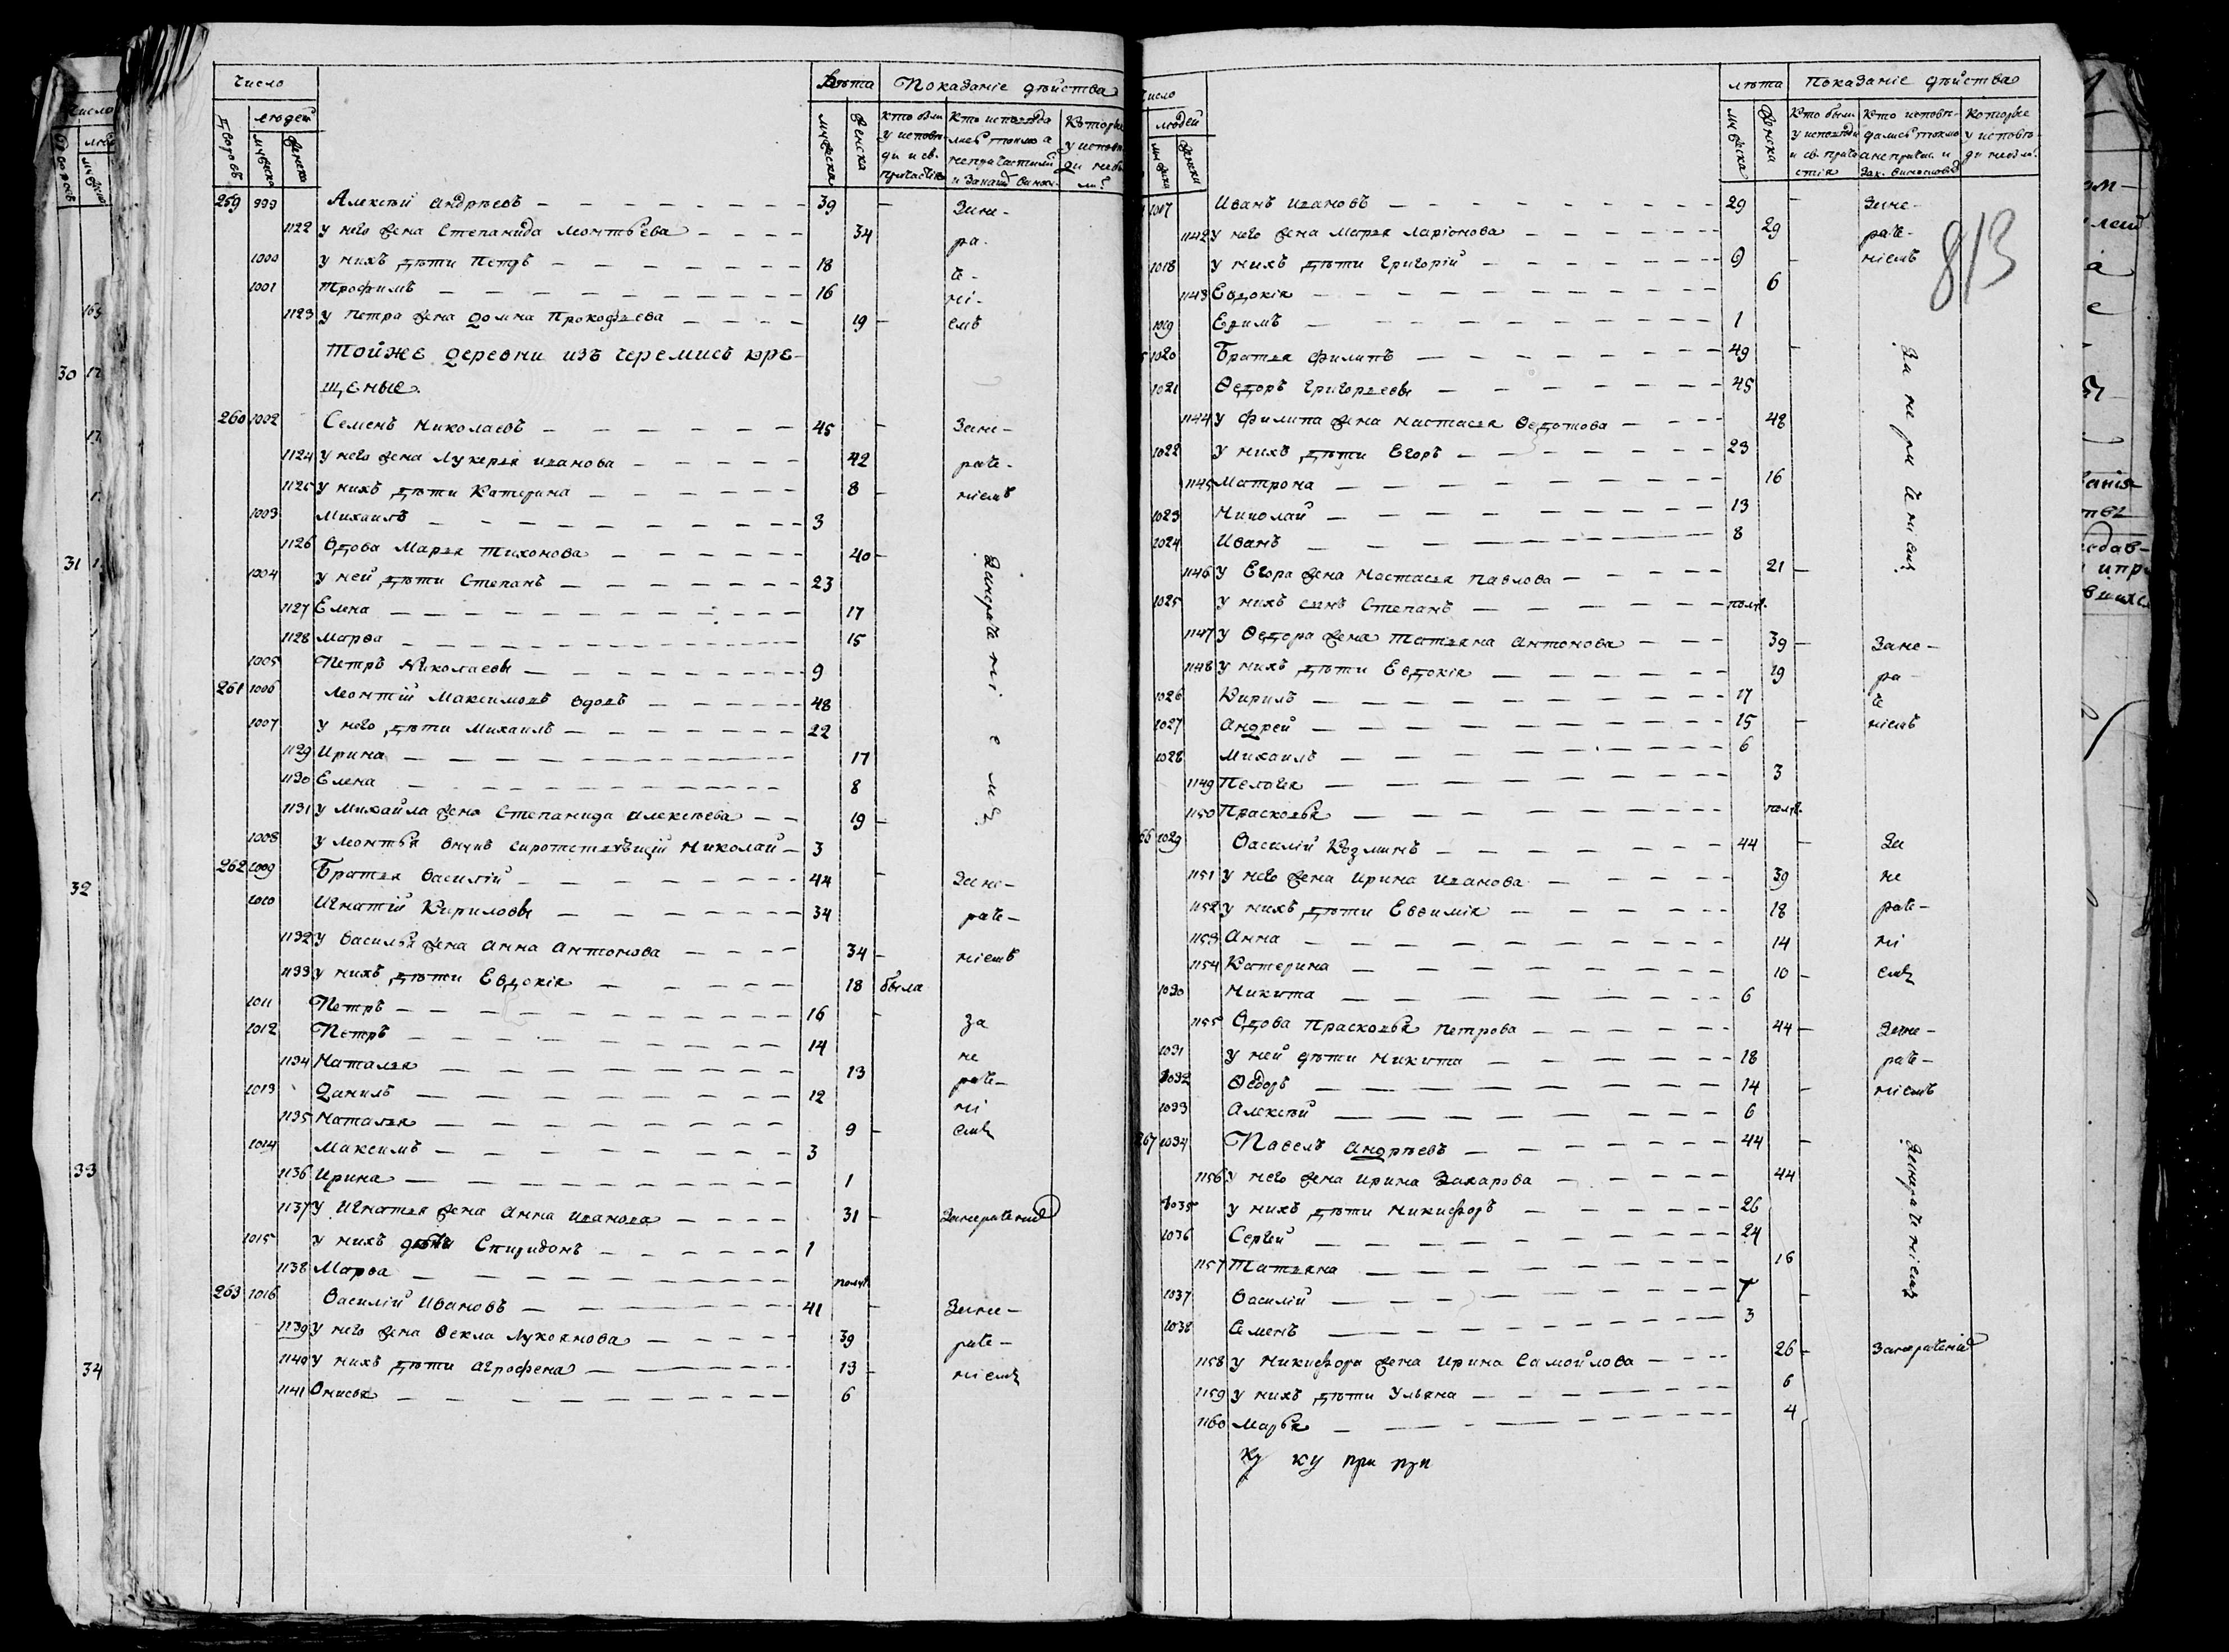 Число
Лѣта Показаніе дѣйства
дворовъ людей мужеска женска
мужеска женска кто были у исповѣди и св. причастія
259 999 Алексѣй Андрѣевъ 39 Зане-
1122 у него жена Степанида Леонтьева 34 ра-
1000 у нихъ дѣти Петръ 18 че-
1001 Трофимъ 16 ні-
1123 у Петра жена Домна Прокофьева 19 емъ
Тойже деревни изъ черемисъ кре-
щеные
260 1002 Семенъ Николаевъ 45 Зане-
1124 у него жена Лукерья Иванова 42 раче-
1125 у нихъ дѣти Катерина 8 ніемъ
1003 Михаилъ 3
1126 Вдова Марья Тихонова 40 Занераченіемъ
1004 у ней дѣти Степанъ 23
1127 Елена 17
1128 Марѳа 15
1005 Петръ Николаевъ 9
261 1006 Леонтій Максимовъ вдовъ 48
1007 у него дѣти Михаилъ 22
1129 Ирина 17
1130 Елена 8
1131 у Михайла жена Степанида Алексѣева 19
1008 у Леонтья внукъ Николай 3
262 1009 Братья Василій 44 Зане-
1010 Игнатій Кириловы 34 раче-
1132 у Василья жена Анна Антонова 34 ніемъ
1133 у нихъ дѣти Евдокія 18 была
1011 Петръ 16 за
1012 Петръ 14 не
1134 Наталья 13 раче-
1013 Данилъ 12 ні
1135 Наталья 9 емъ
1014 Максимъ 3
1136 Ирина 1
1137 у Игнатья жена Анна Иванова 31 Занераченіе
1015 у нихъ дѣти Спиридонъ 1
1138 Марѳа полуг.
263 1016 Василій Ивановъ 41 Зане-
1139 у него жена Ѳекла Лукоянова 39 раче-
1140 у нихъ дѣти Агрофена 13 ніемъ
1141 Онисья 6
Число
лѣта Показаніе дѣйства
людей мужеска женска
813
1017 Иванъ Ивановъ 29 Зане-
1142 у него жена Марья Ларіонова 29 раче-
1018 у нихъ дѣти Григорій 9 ніемъ
1143 Евдокія 6
1019 Ефимъ 1
1020 Братья Филипъ 49 Занераченіемъ
1021 Ѳедоръ Григорьевы 45
1144 у Филипа жена Настасья Ѳедотова 48
1022 у нихъ дѣти Егоръ 23
1145 Матрона 16
1023 Николай 13
1024 Иванъ 8
1146 у Егора жена Настасья Павлова 21
1025 у нихъ сынъ Степанъ полг.
1147 у Ѳедора жена Татьяна Антонова 39 Зане-
1148 у нихъ дѣти Евдокія 19 ра-
1026 Кирилъ 17 че
1027 Андрей 15 ніемъ
1028 Михаилъ 6
1149 Пелогея 3
1150 Прасковья полг.
1029 Василій Козминъ 44 За
1151 у него жена Ирина Иванова 39 не
1152 у нихъ дѣти Евѳимія 18 раче-
1153 Анна 14 ні
1154 Катерина 10 емъ
1030 Никита 6
1155 Вдова Прасковья Петрова 44 Зане-
1031 у ней дѣти Никита 18 раче-
1032 Ѳедоръ 14 ніемъ
1033 Алексѣй 6
267 1034 Павелъ Андрѣевъ 44 Занераченіемъ
1156 у него жена Ирина Захарова 44
1035 у нихъ дѣти Никифоръ 26
1036 Сергей 24
1157 Татьяна 16
1037 Василій 7
1038 Семенъ 3
1158 у Никифора жена Ирина Самойлова 26 Занераченіе
1159 у нихъ дѣти Ульяна 6
1160 Марья 4
ку ку при